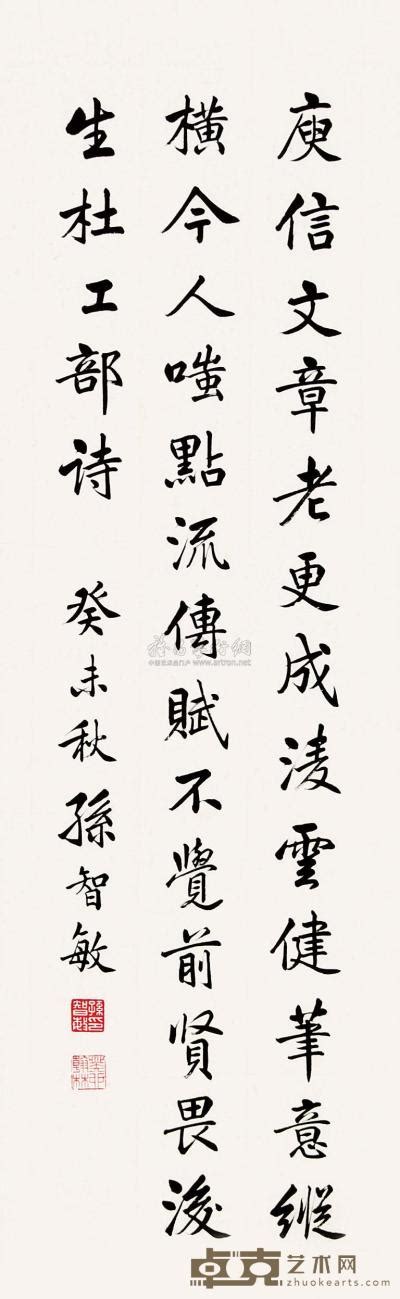 庾信文章老更成淩雲健筆意縱
橫今人嗤點流傳賦不覺前賢畏後
生杜工部詩 癸未秋孫智敏
www.artron.net
卓克艺术网
zhuokearts.com